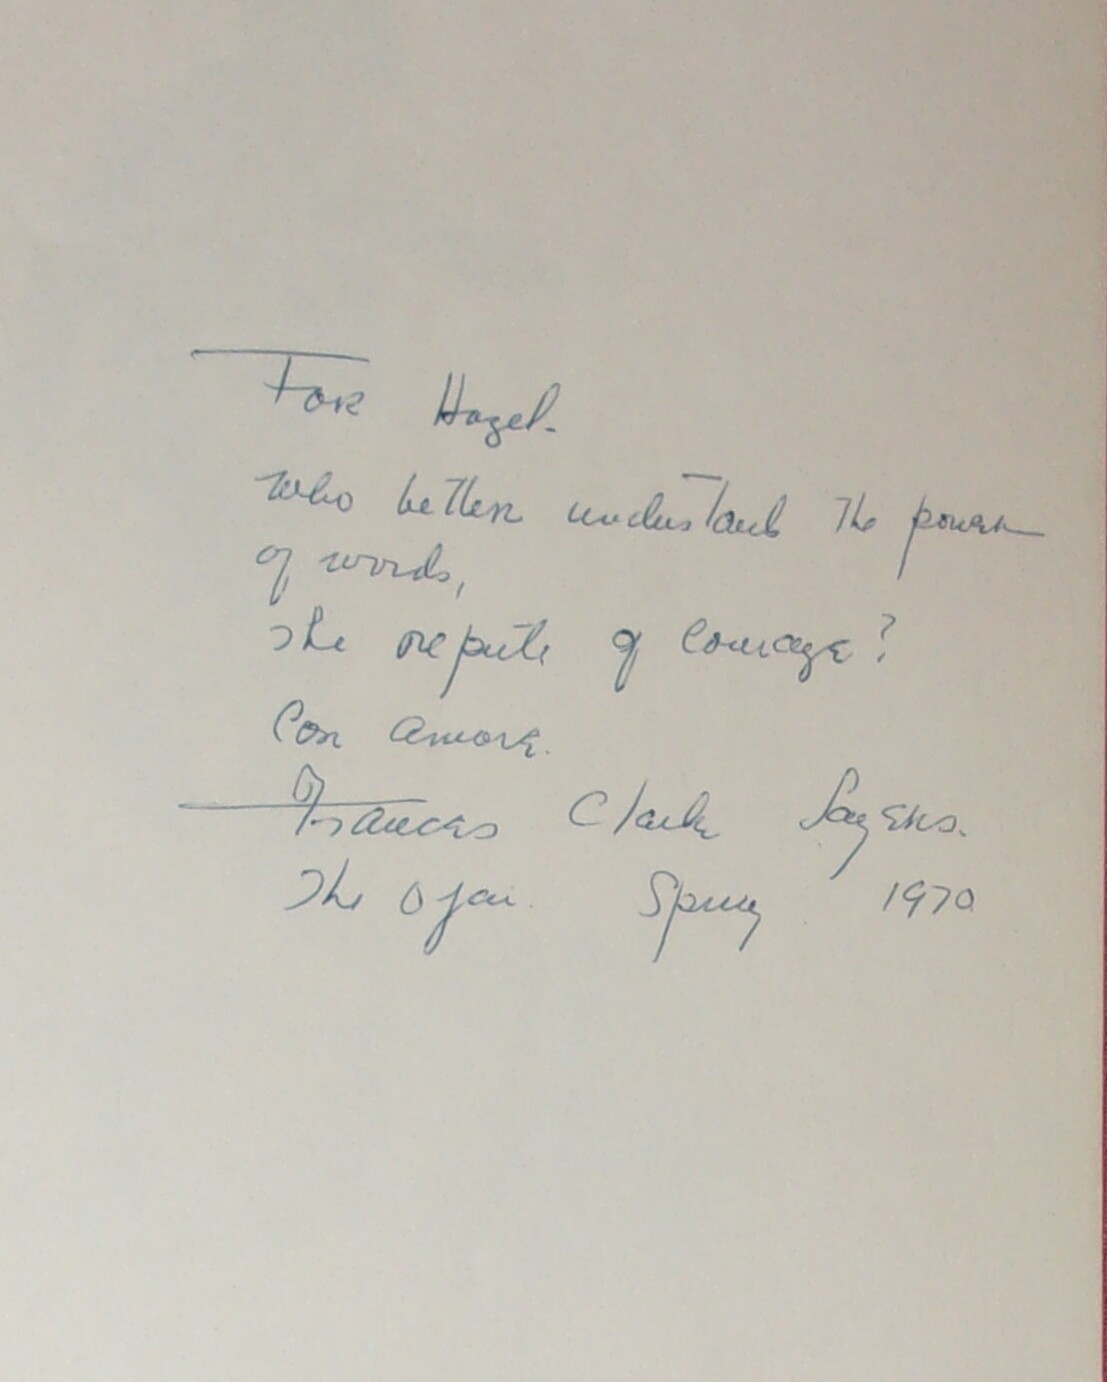 For Hazel.
Who better understands the power
of words,
the repute of courage?
Con amore.
Frances Clarke Sayers.
The Ojai. Spring 1970